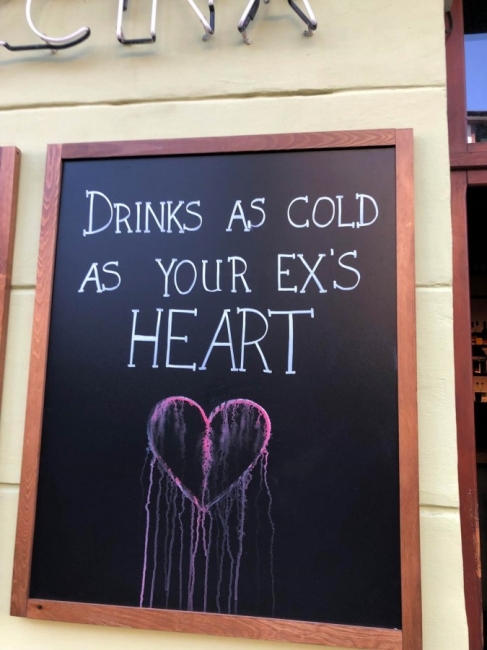 DRINKS AS COLD
AS YOUR EX'S
HEART